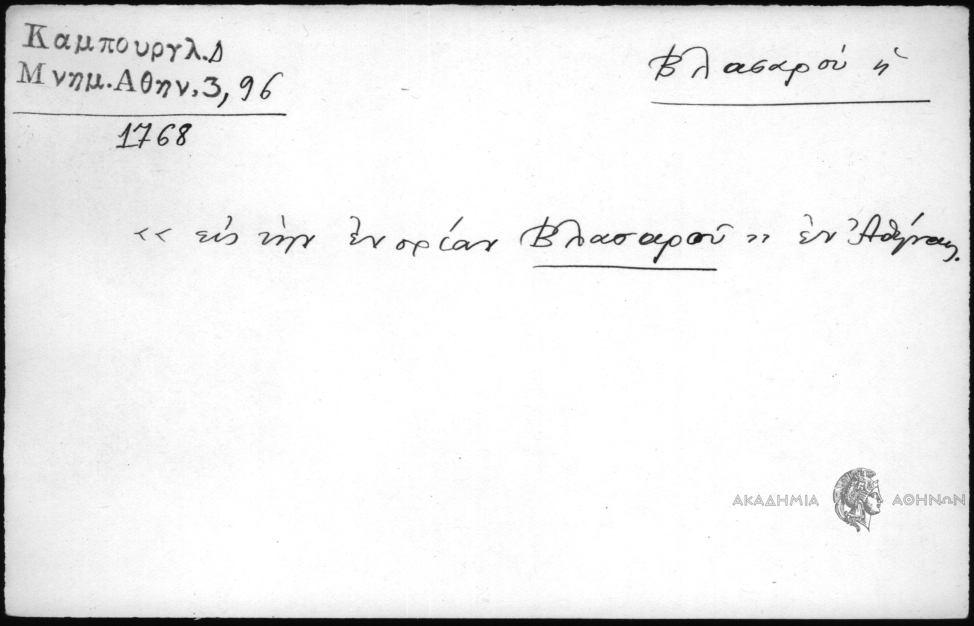 Καμπουργλ.Δ
Μνημ.Αθην.3,96
1768
Βλασαροῦ ἡ
«εἰς τὴν ἐνορίαν Βλασαροῦ» ἐν Ἀθήναις.
ΑΚΑΔΗΜΙΑ ΑΘΗΝΩΝ